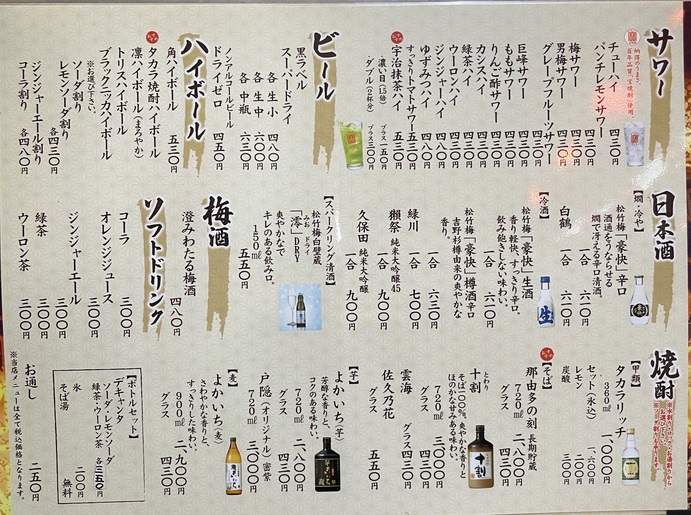 サワー
チューハイ
パンチレモンサワー
梅サワー
男梅サワー
グレープフルーツサワー
各四三〇円
巨峰サワー 四三〇円
ももサワー 四三〇円
りんご酢サワー 四三〇円
カシスハイ 四三〇円
緑茶ハイ 四三〇円
ウーロンハイ 四三〇円
ジンジャーハイ 四八〇円
ゆずみつハイ 四八〇円
すっきりトマトサワー 五三〇円
宇治抹茶ハイ 五三〇円
・濃い目(1.5倍) プラス一五〇円
・ダブル(2杯分) プラス三〇〇円
ビール
黒ラベル
スーパードライ
各生小 四八〇円
各生中 六三〇円
各中瓶 七三〇円
ノンアルコールビール
ドライゼロ 四五〇円
ハイボール
角ハイボール 五三〇円
タカラ焼酎ハイボール
凛ハイボール(まろやか)
トリスハイボール
ブラックニッカハイボール
※お選び下さい。
ソーダ割り
レモンソーダ割り 各四三〇円
ジンジャーエール割り
コーラ割り 各四八〇円
日本酒
【燗・冷や】
松竹梅「豪快」辛口
酒通をうならせる
燗で冴える辛口清酒。
一合 六二〇円
白鶴
一合 六二〇円
【冷酒】
松竹梅「豪快」生酒
香り軽快、すっきり辛口。
飲み飽きしない味わい。
一合 六二〇円
松竹梅「豪快」樽酒辛口
吉野杉樽由来の爽やかな
香り。
一合 六三〇円
緑川
一合 七〇〇円
獺祭 純米大吟醸45
一合 九〇〇円
久保田 純米大吟醸
一合 九〇〇円
【スパークリング清酒】
松竹梅白壁蔵
「澪」DRY
みお ドライ
爽やかで
キレのある飲み口。
150㎖
五五〇円
梅酒
澄みわたる梅酒
四八〇円
ソフトドリンク
コーラ 三〇〇円
オレンジジュース 三〇〇円
ジンジャーエール 三〇〇円
緑茶 三〇〇円
ウーロン茶 三〇〇円
焼酎
【甲類】
タカラリッチ
360㎖ 一、〇〇〇円
セット(氷込) 一、六〇〇円
レモン
炭酸
【そば】
那由多の刻 長期貯蔵
720㎖ 二、八〇〇円
グラス 四三〇円
十割
とわり
そば100%、爽やかな香りと
ほのかな甘みある味わい。
720㎖ 三、〇〇〇円
グラス 四三〇円
雲海
グラス 四三〇円
佐久乃花
グラス 五五〇円
【芋】
よかいち(芋)
芳醇な香りと、
コクのある味わい。
720㎖ 二、八〇〇円
グラス 四三〇円
戸隠(オリジナル)密紫
720㎖ 三、〇〇〇円
グラス 四三〇円
【麦】
よかいち(麦)
さわやかな香りと、
すっきりした味わい。
900㎖ 二、九〇〇円
グラス 四三〇円
【ボトルセット】
デキャンタ
ソーダ・レモンソーダ
緑茶・ウーロン茶 各三五〇円
氷 二〇〇円
そば湯 無料
お通し 二五〇円
※当店メニューは全て税込価格となります。